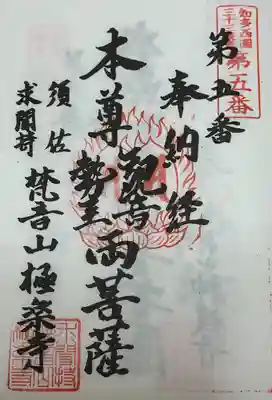 知多西国
三十三所
第五番
第五番
奉納経
本尊観音勢至両菩薩
須佐
求聞持
梵音山極楽寺